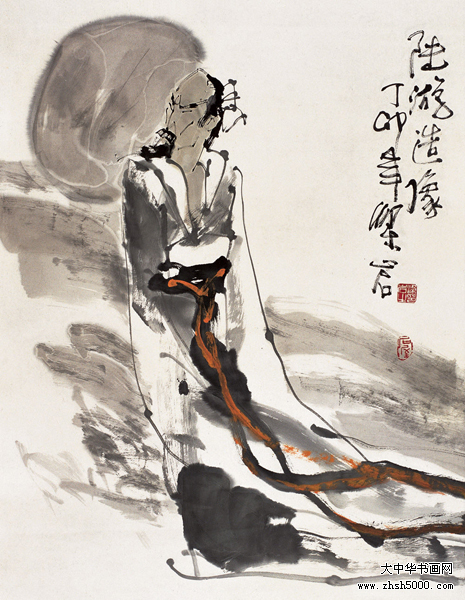 陆游造像
丁卯年梁岩
大中华书画网
www.zhsh5000.com